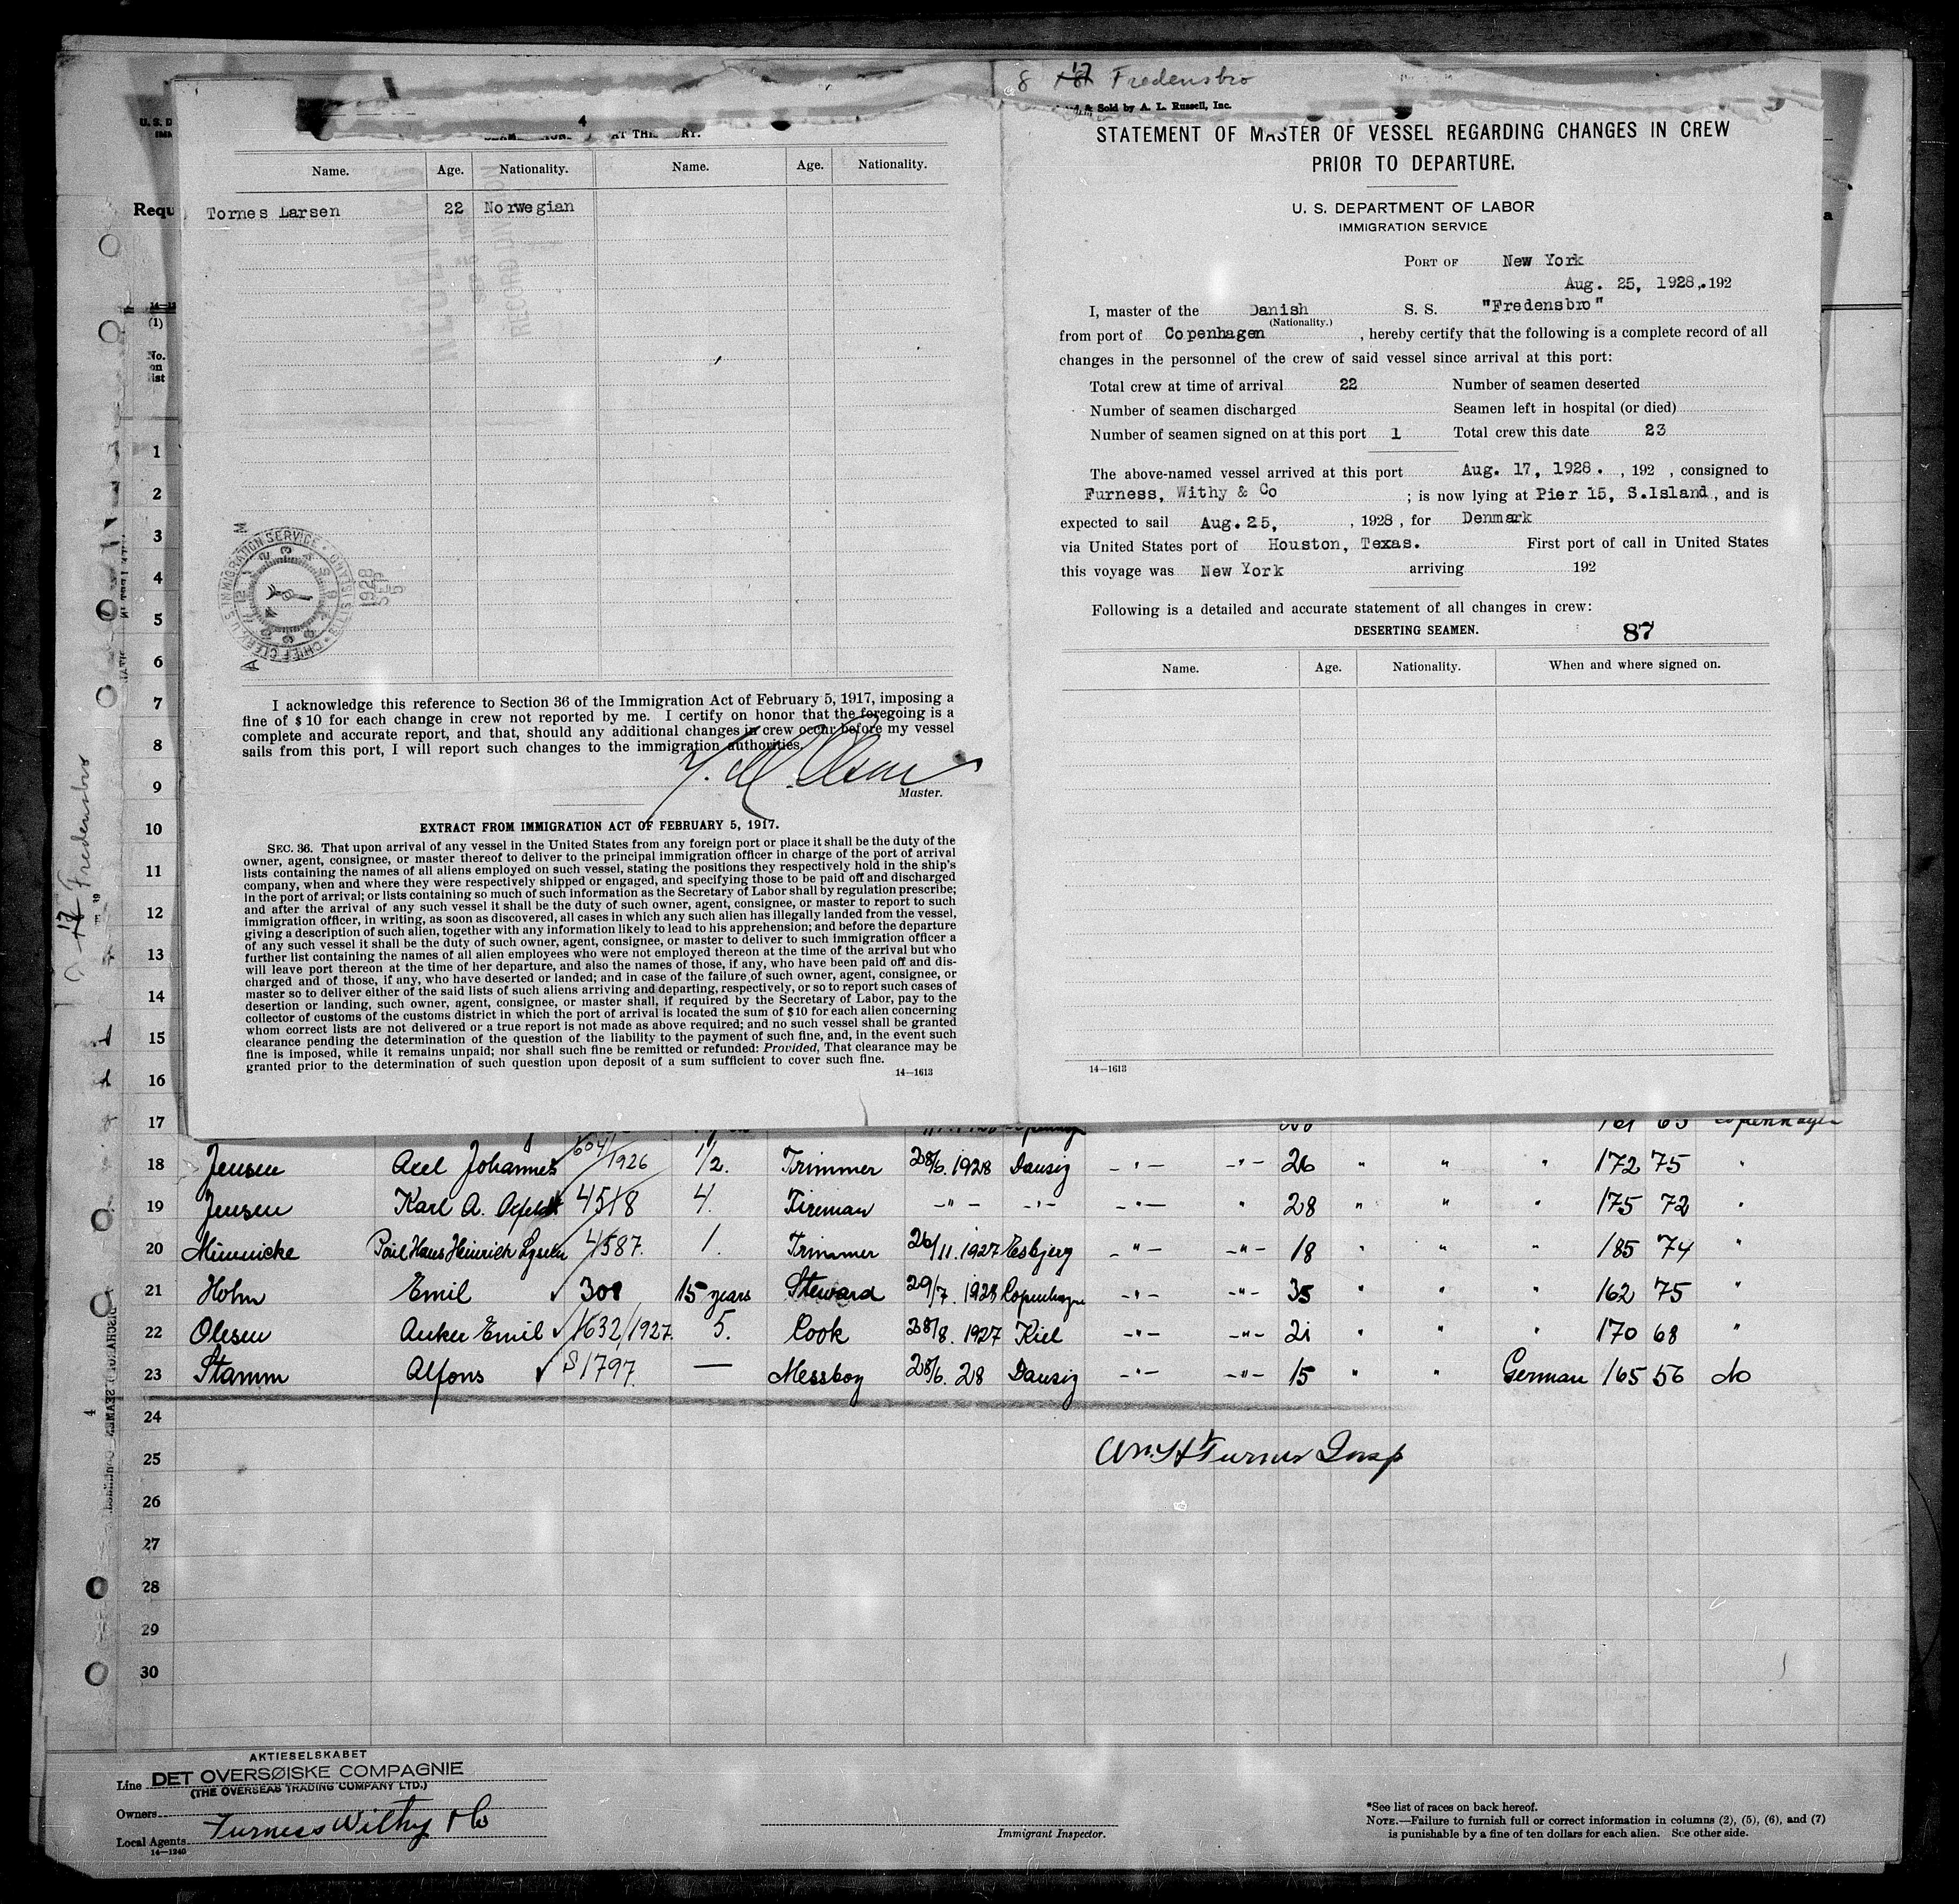 8 17 Fredensbro
& Sold by A. L. Russell, Inc.
4
AT THIS
Name. Age. Nationality. Name. Age. Nationality.
Tornes Larsen 22 Norwegian
CHIEF CLERK, U.S. IMMIGRATION SERVICE • ELLIS ISLAND •
1928 SEP 5
I acknowledge this reference to Section 36 of the Immigration Act of February 5, 1917, imposing a
fine of $10 for each change in crew not reported by me. I certify on honor that the foregoing is a
complete and accurate report, and that, should any additional changes in crew occur before my vessel
sails from this port, I will report such changes to the immigration authorities.
Master.
EXTRACT FROM IMMIGRATION ACT OF FEBRUARY 5, 1917.
SEC. 36. That upon arrival of any vessel in the United States from any foreign port or place it shall be the duty of the
owner, agent, consignee, or master thereof to deliver to the principal immigration officer in charge of the port of arrival
lists containing the names of all aliens employed on such vessel, stating the positions they respectively hold in the ship's
company, when and where they were respectively shipped or engaged, and specifying those to be paid off and discharged
in the port of arrival; or lists containing so much of such information as the Secretary of Labor shall by regulation prescribe;
and after the arrival of any such vessel it shall be the duty of such owner, agent, consignee, or master to report to such
immigration officer, in writing, as soon as discovered, all cases in which any such alien has illegally landed from the vessel,
giving a description of such alien, together with any information likely to lead to his apprehension; and before the departure
of any such vessel it shall be the duty of such owner, agent, consignee, or master to deliver to such immigration officer a
further list containing the names of all alien employees who were not employed thereon at the time of the arrival but who
will leave port thereon at the time of her departure, and also the names of those, if any, who have been paid off and dis-
charged and of those, if any, who have deserted or landed; and in case of the failure of such owner, agent, consignee, or
master so to deliver either of the said lists of such aliens arriving and departing, respectively, or so to report such cases of
desertion or landing, such owner, agent, consignee, or master shall, if required by the Secretary of Labor, pay to the
collector of customs of the customs district in which the port of arrival is located the sum of $10 for each alien concerning
whom correct lists are not delivered or a true report is not made as above required; and no such vessel shall be granted
clearance pending the determination of the question of the liability to the payment of such fine, and, in the event such
fine is imposed, while it remains unpaid; nor shall such fine be remitted or refunded: Provided, That clearance may be
granted prior to the determination of such question upon deposit of a sum sufficient to cover such fine.
14—1613
STATEMENT OF MASTER OF VESSEL REGARDING CHANGES IN CREW
PRIOR TO DEPARTURE.
U. S. DEPARTMENT OF LABOR
IMMIGRATION SERVICE
PORT OF New York
Aug. 25, 1928, 192
I, master of the Danish S. S. "Fredensbro"
(Nationality.)
from port of Copenhagen, hereby certify that the following is a complete record of all
changes in the personnel of the crew of said vessel since arrival at this port:
Total crew at time of arrival 22 Number of seamen deserted
Number of seamen discharged Seamen left in hospital (or died)
Number of seamen signed on at this port 1 Total crew this date 23
The above-named vessel arrived at this port Aug. 17, 1928. , 192 , consigned to
Furness, Withy & Co ; is now lying at Pier 15, S.Island, and is
expected to sail Aug. 25, , 1928 , for Denmark
via United States port of Houston, Texas. First port of call in United States
this voyage was New York arriving 192
Following is a detailed and accurate statement of all changes in crew:
DESERTING SEAMEN. 87
Name. Age. Nationality. When and where signed on.
14—1613
Requ
(1)
No.
on
list
1
2
3
4
5
6
7
8
9
10
11
12
13
14
15
16
17
18 Jensen Axel Johannes 1926 1/2. Trimmer 28/6. 1928 Danzig -"- -"- 26 " " " 172 75 "
19 Jensen Karl A. 4518 4. Fireman -"- -"- -"- " 28 " " " 175 72 "
20 Minnicke Hans Heinrich 4587. 1. Trimmer 26/11. 1927 Esbjerg -"- -"- 18 " " " 185 74 "
21 Holm Emil 15 years Steward 29/7. 1928 Copenhagen -"- -"- 35 " " " 162 75 "
22 Olesen Anker Emil 1632/1927. 5. Cook 28/8. 1927 Kiel -"- -"- 21 " " " 170 68 "
23 Stamm Alfons S 1797. — Messboy 28/6. 28 Danzig -"- -"- 15 " " German 165 56 do
24
25 Wm H Turner Insp
26
27
28
29
30
17 Fredensbro
Line AKTIESELSKABET
DET OVERSØISKE COMPAGNIE
(THE OVERSEAS TRADING COMPANY LTD.)
Owners
Local Agents Furness Withy & Co
14—1240
Immigrant Inspector.
*See list of races on back hereof.
NOTE.—Failure to furnish full or correct information in columns (2), (5), (6), and (7)
is punishable by a fine of ten dollars for each alien. See other side.